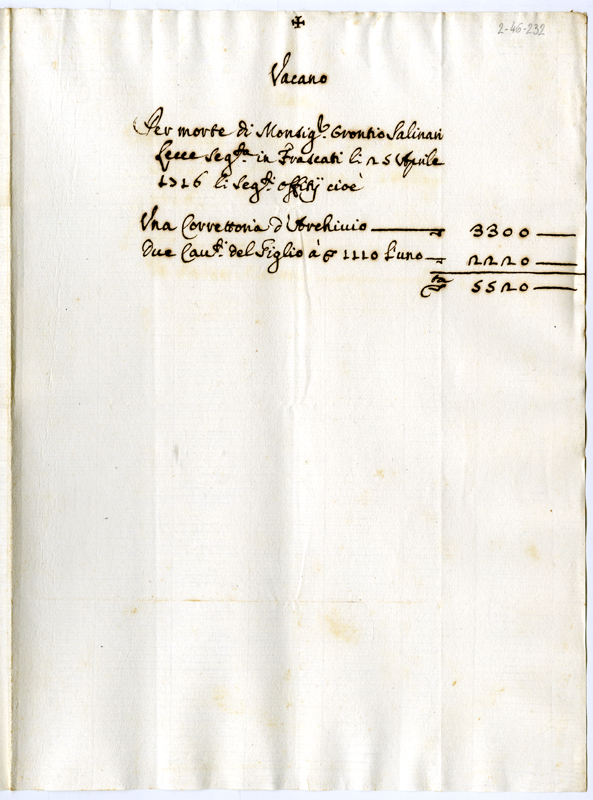 ✠
2-46-232
Vacano
Per morte di Monsig.r Orontio Salinari
Lecce seg.ta in Frascati li 25 Aprile
1716 li seg.ti offitij cioè
Una Correttoria d'Archivio 3300
Due Cau.ti del Giglio à 1110 l'uno 2220
5520